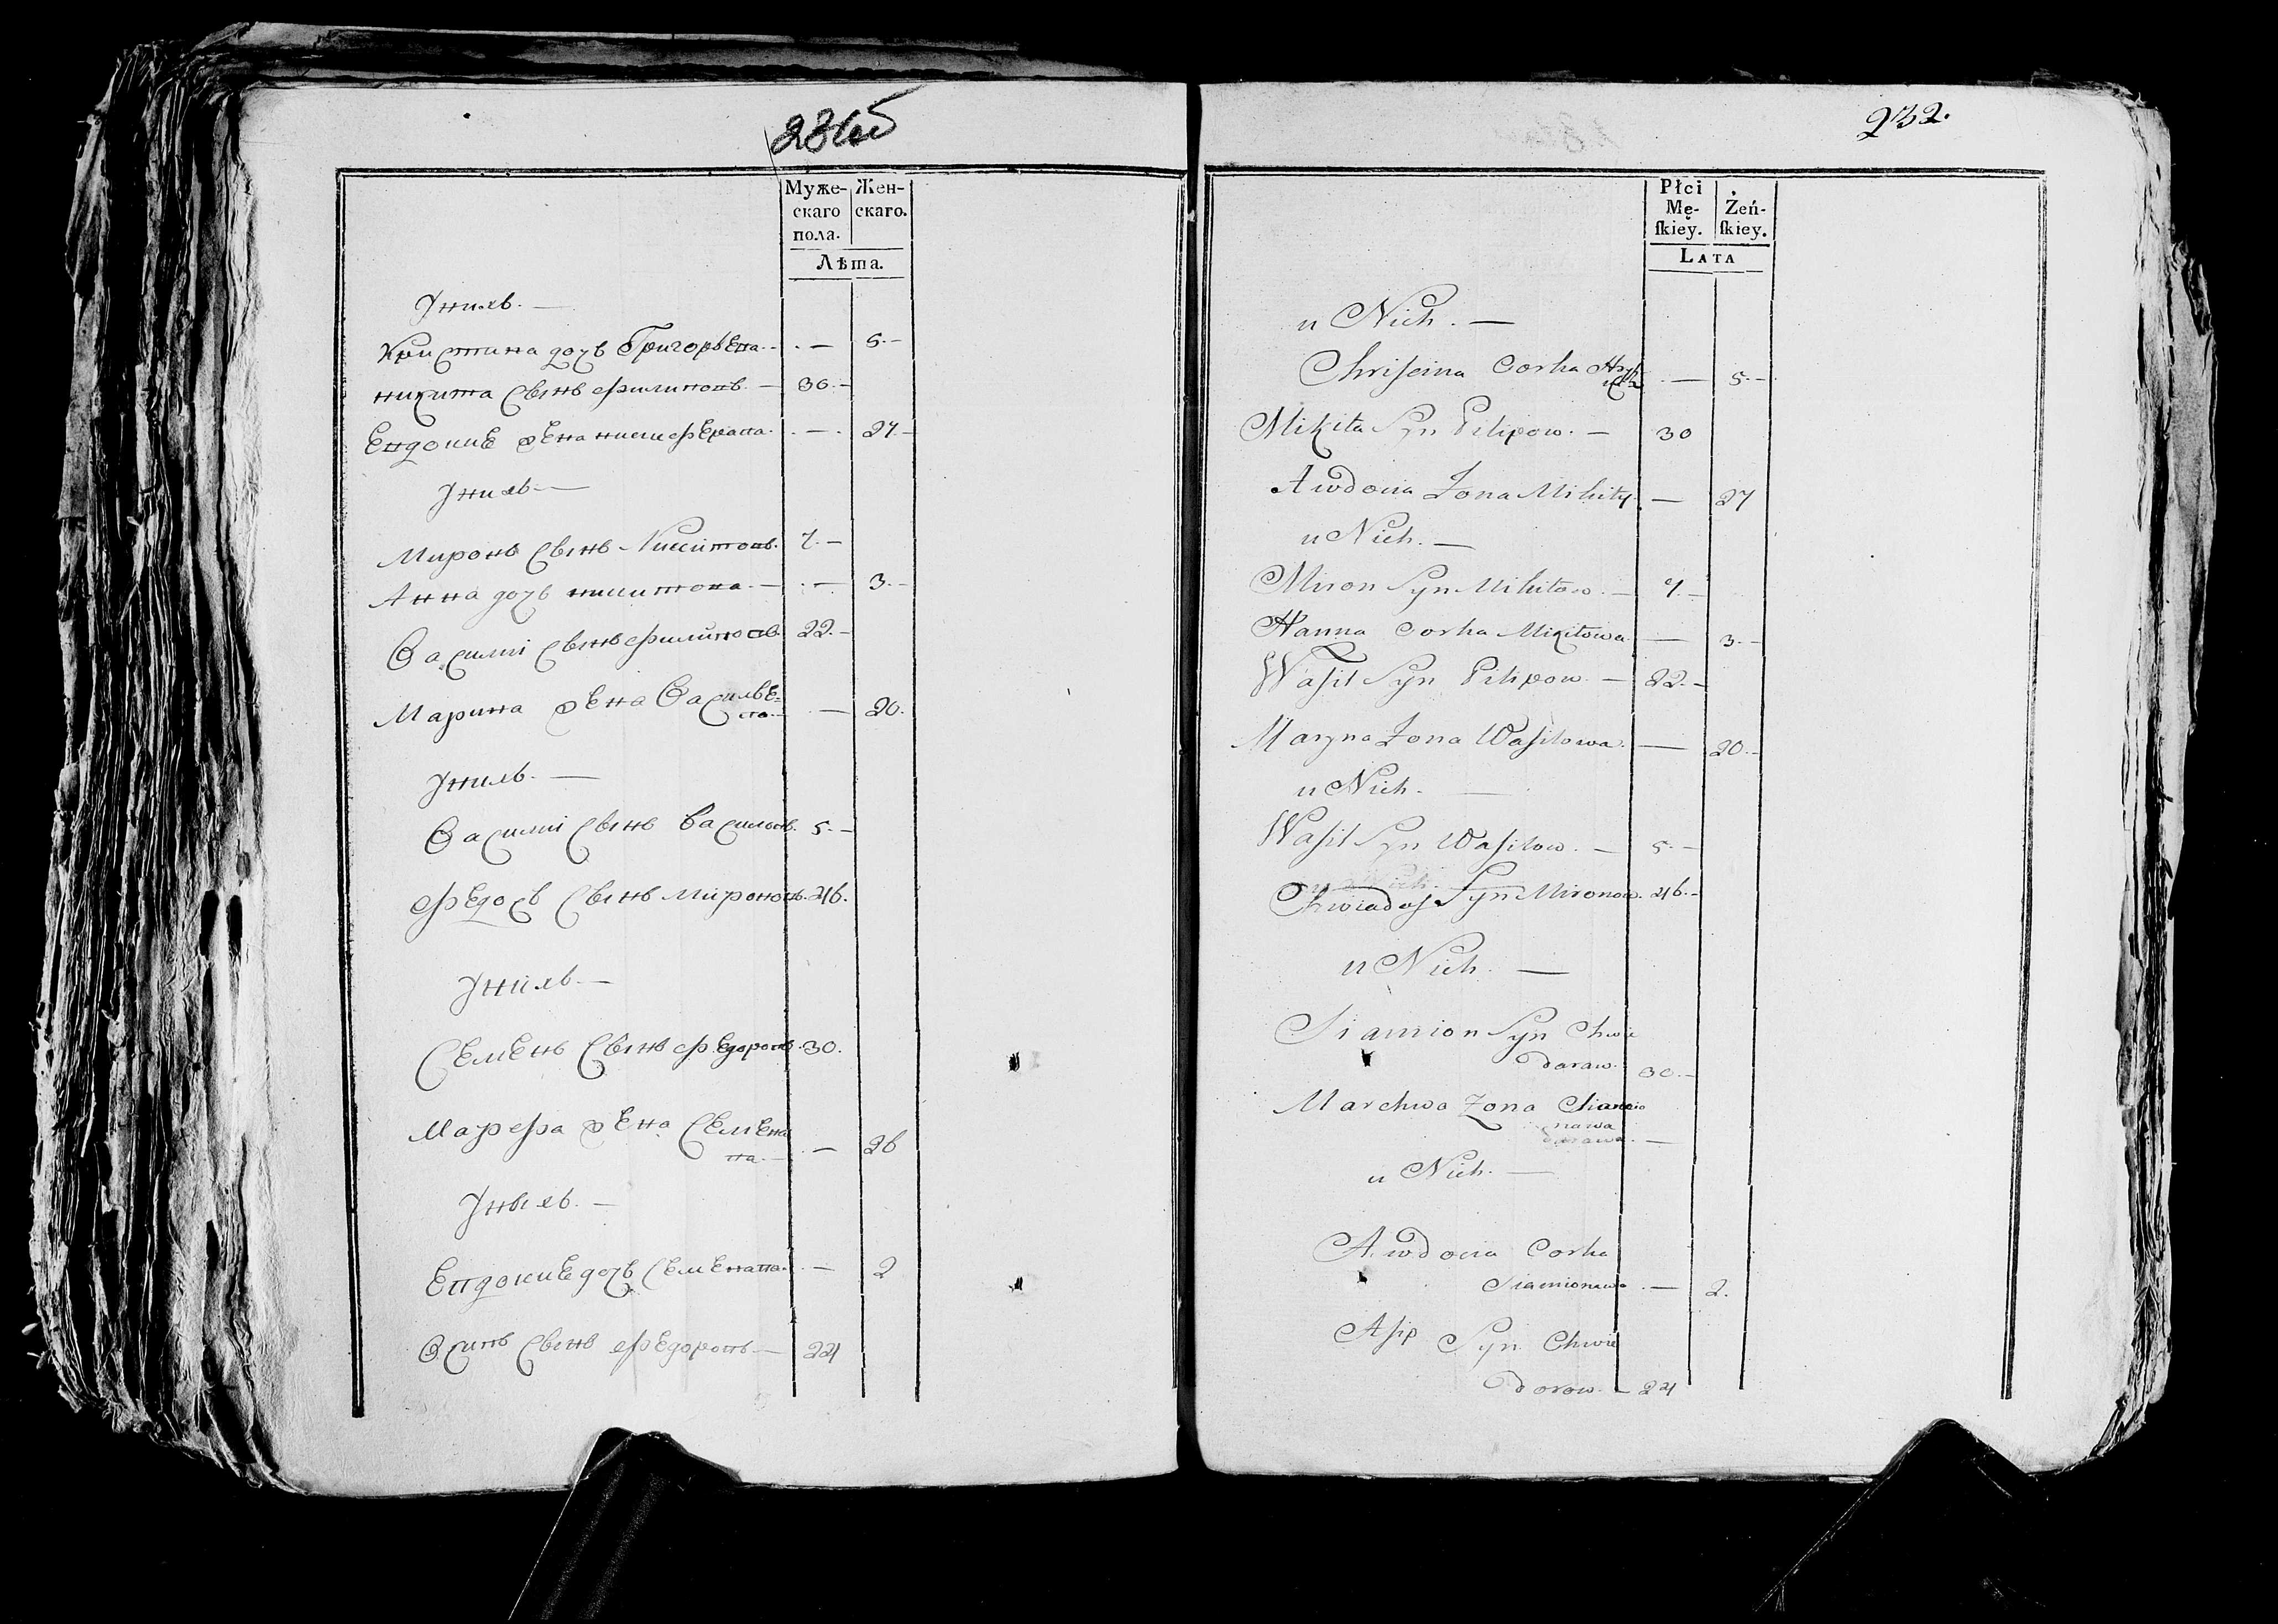 231об
Муже-
скаго
пола.
Жен-
скаго.
Лѣта.
Унихъ. —
Христина дочь Григорьева. — 5. —
никита сынъ филиповъ. — 30. —
Евдокие жена — 27. —
Унихъ —
Миронъ сынъ Никитовъ. 7. —
Анна дочь никитова. — 3. —
Василий сынъ филиповъ 22. —
Марина жена Василье=
ва. — 20.
Унихъ. —
Василий сынъ васильовъ. 5. —
федосъ сынъ мироновъ. 46.
Унихъ. —
Семенъ сынъ федоровъ. 30.
Марфа жена Семена
ва. — 26
Уныхъ. —
Евдокие дочь Семенова. — 2
Осипъ сынъ федоровъ — 24
232.
Płci
Mę-
ſkiey.
Żeń-
ſkiey.
LATA
u Nich. —
Chriſcina Corka — 5. —
Mikita Syn Pilipow. — 30
Awdocia Zona Mikity. — 27
u Nich. —
Miron Syn Mikitow. — 7. —
Hanna Corka Mikitowa. — 3. —
Waſil Syn Pilipow. — 22. —
Maryna Zona Waſilowa. — 20. —
u Nich. —
Waſil Syn Waſilow. — 5. —
Chwiadoſ Syn Mironow. 46. —
u Nich. —
Siamion Syn Chwie
daraw. 30. —
Marchwa Zona Siamio
nawa —
u Nich. —
Awdocia Corka
Siamionawa. — 2.
Aſip Syn Chwie
dorow. — 24